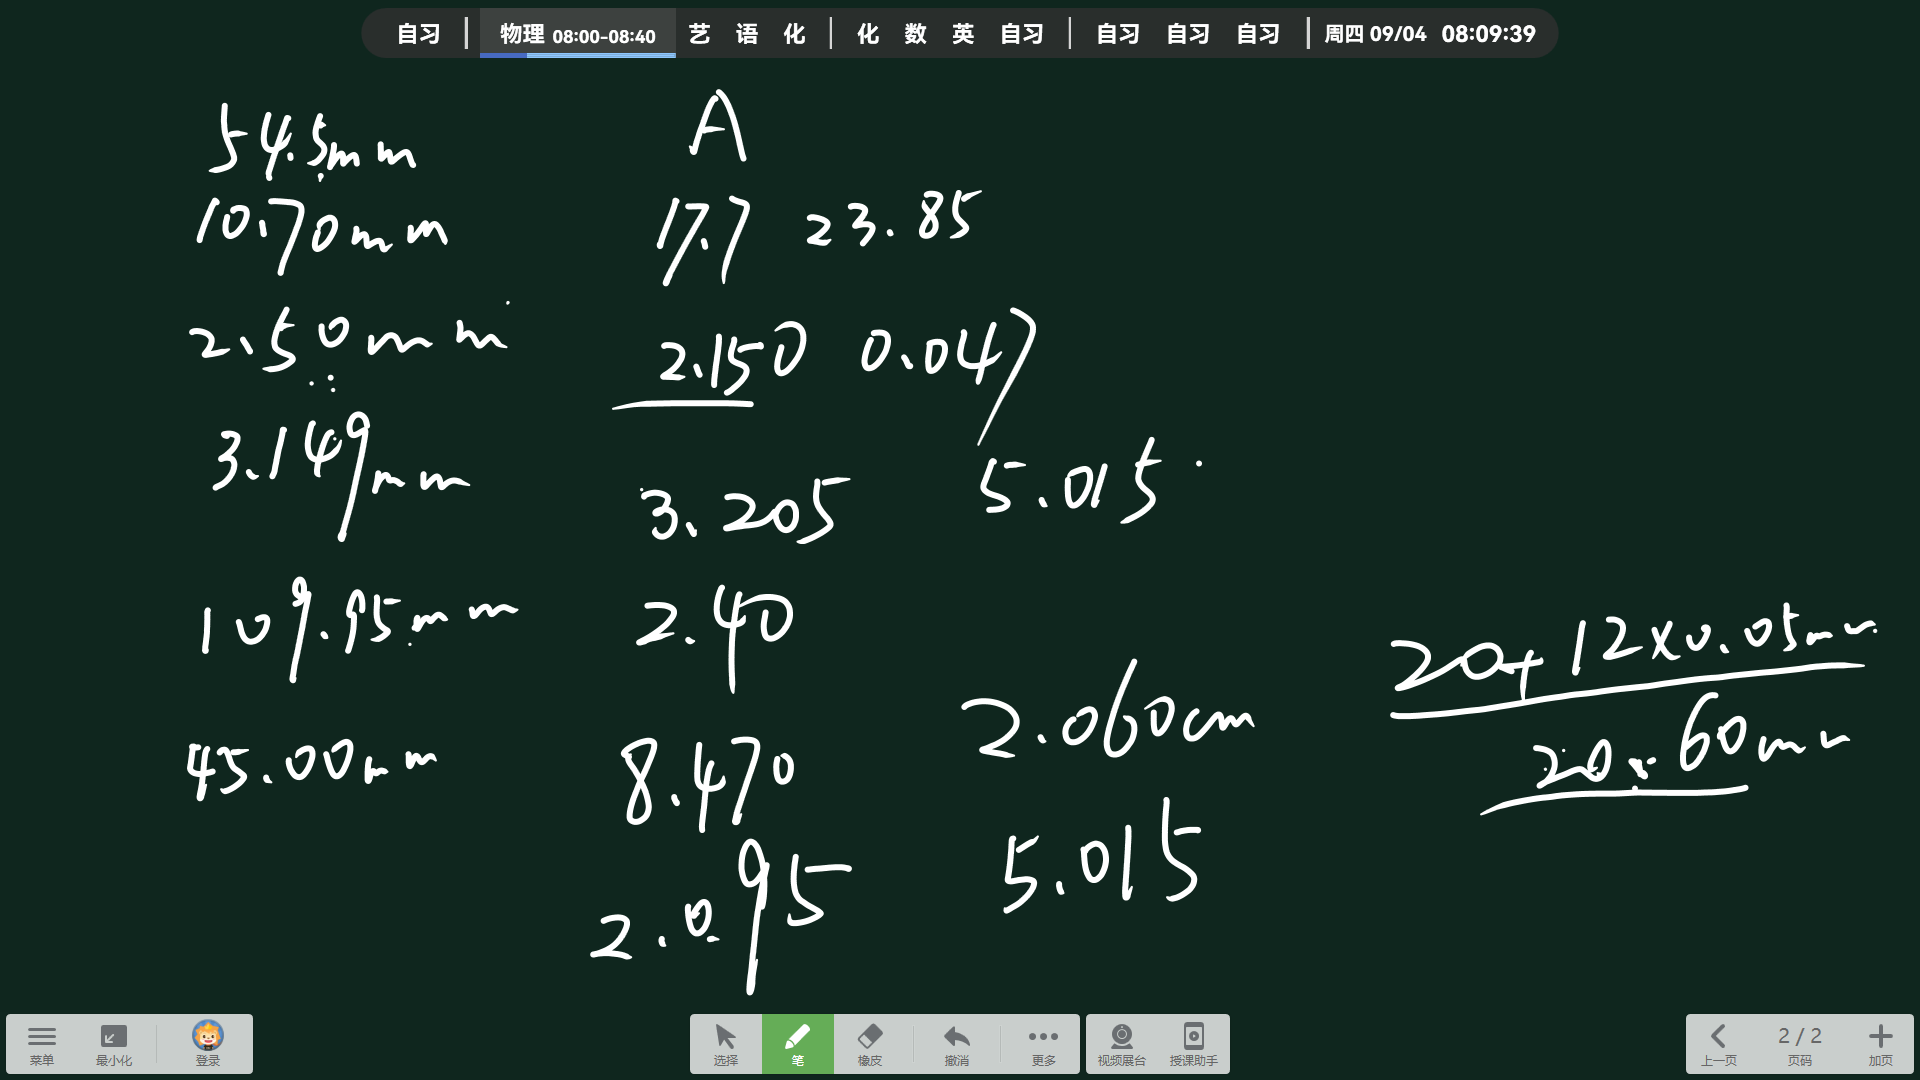 自习 | 物理 08:00-08:40 艺 语 化 | 化 数 英 自习 | 自习 自习 自习 | 周四 09/04 08:09:39
54.5mm
10.70mm
2.50mm
3.149mm
109.95mm
45.00mm
A
17.7 23.85
2.150 0.047
5.015
3.205
2.40
8.470
2.095
2.060cm
5.015
20+12×0.05mm
20.60mm
菜单 最小化 登录
选择 笔 橡皮 撤消 更多
视频展台 授课助手
上一页 2 / 2 页码 加页